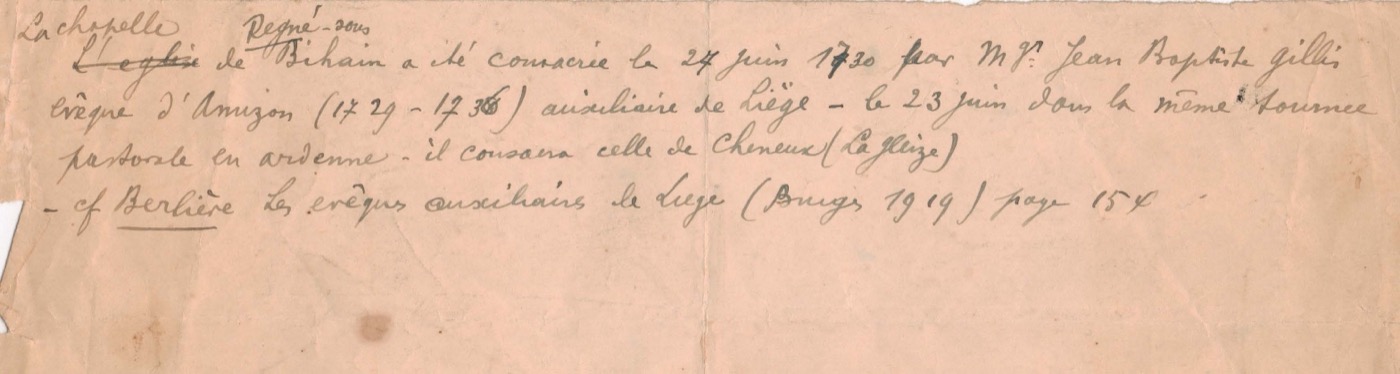 La chapelle Regné-sous
L'eglise de Bihain a été consacrée le 24 juin 1730 par Mgr. Jean Baptiste Gillis
evêque d'Amizon (1729 - 1736) auxiliaire de Liège - le 23 juin dans la même tournée
pastorale en ardenne - il consacra celle de Cheneux (La gleize)
- cf Berlière Les evêques auxiliaires de Liege (Bruges 1919) page 154